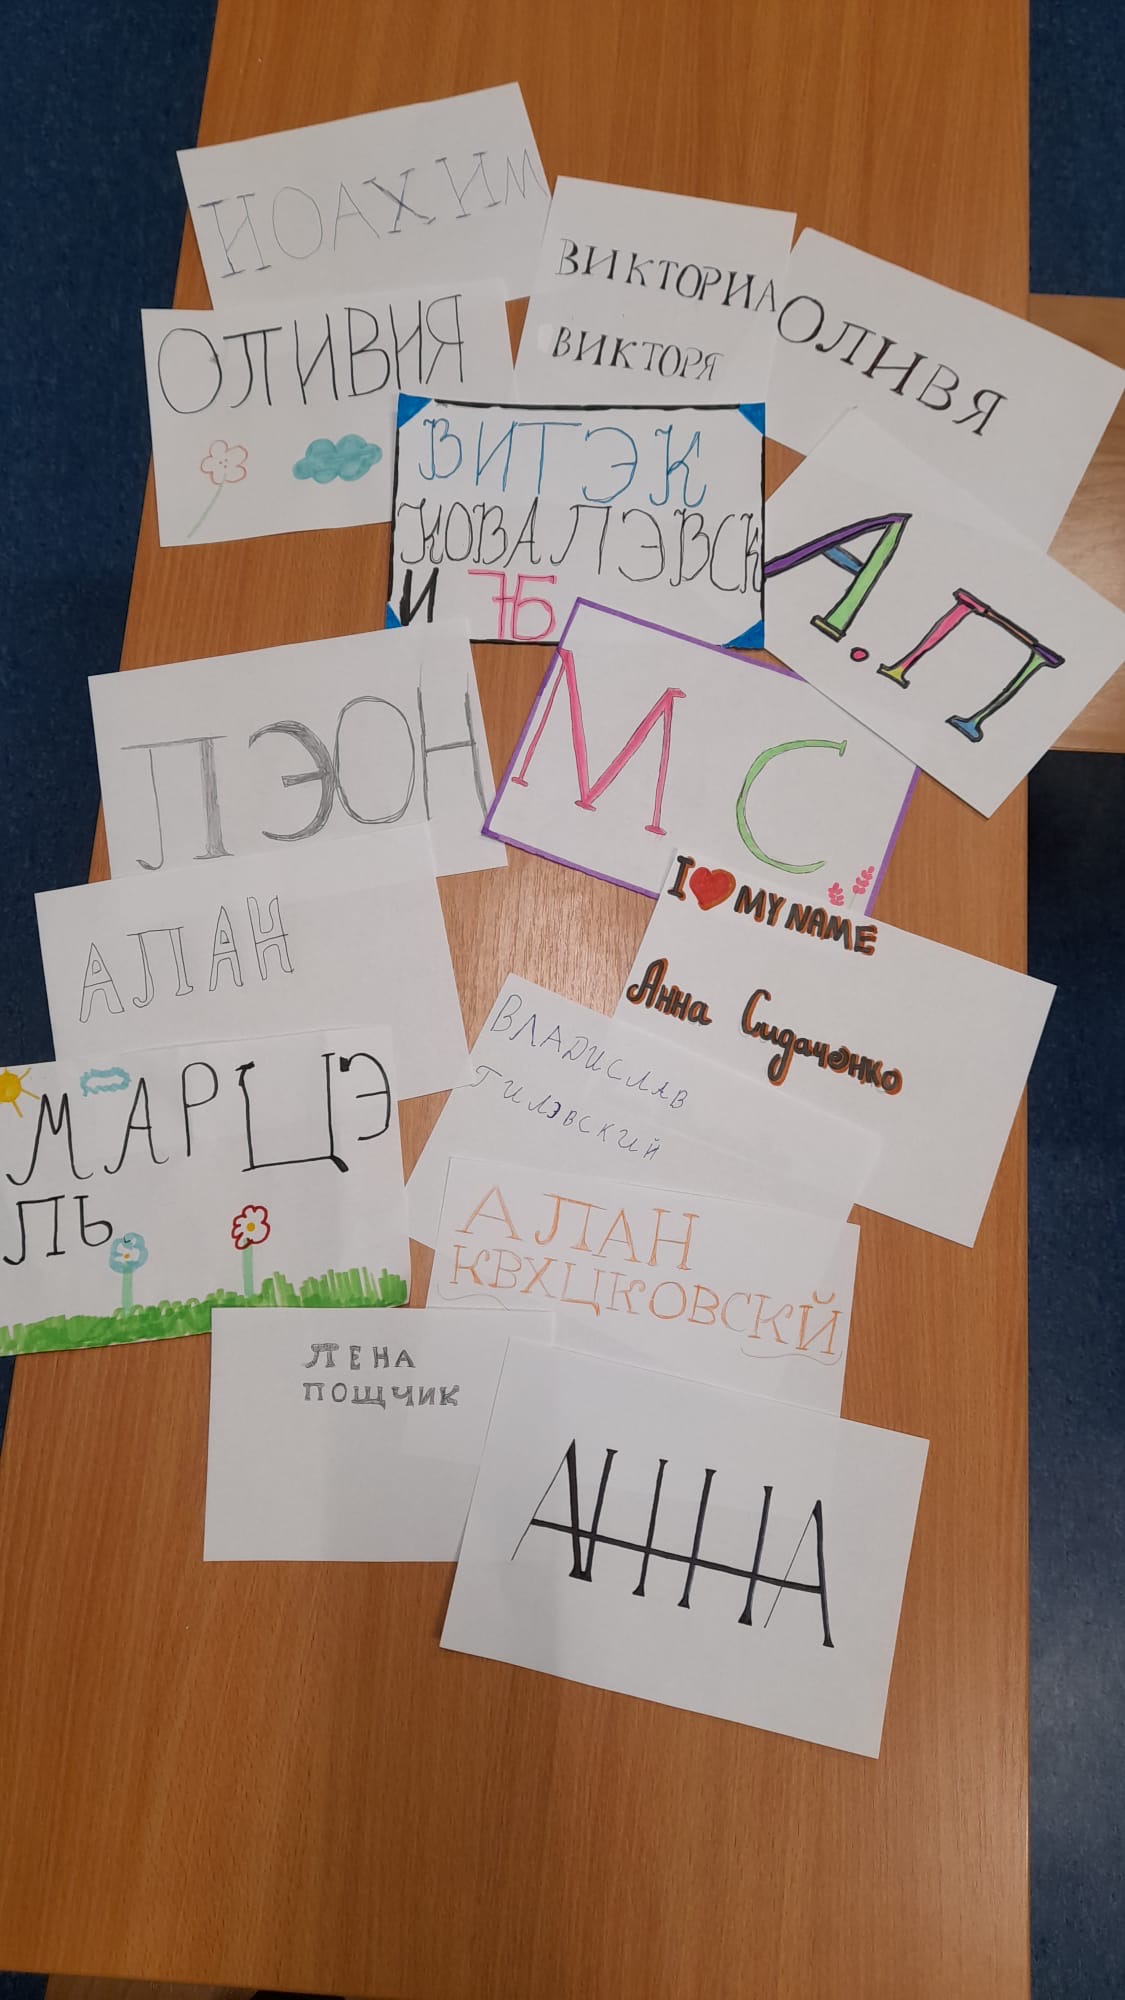 ЙОАХИМ
ВИКТОРИА
ВИКТОРЯ
ОЛИВЯ
ОЛИВИЯ
ВИТЭК
КОВАЛЭВСК
И 7Б
А.П
ЛЭОН
М С
I ❤ MY NAME
Анна Сидачэнко
АЛАН
ВЛАДИСЛАВ
ГИЛЭВСКИЙ
МАРЦЭ
ЛЬ
АЛАН
КВХЦКОВСКЙ
ЛЕНА
ПОЩЧИК
АННА